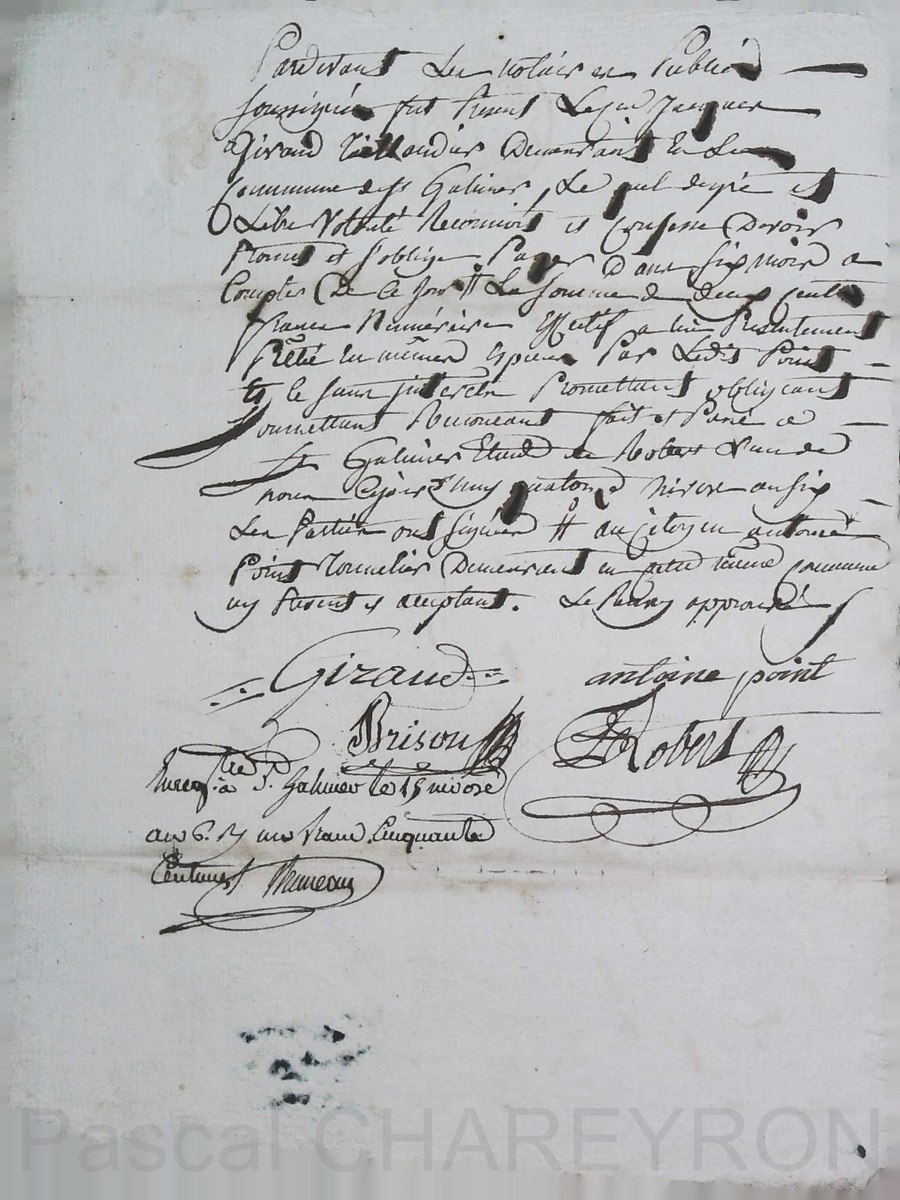 Pardevant Les notaires Publics
Soussignés fut Present Le cen Jacques
Giraud Taillandier Demeurant En La
Commune de St Galmier, Le quel de gré et
Libre Volonté Reconnoit et Confesse Devoir
Promet et s'oblige Payer Dans Six mois a
Compter De Ce Jour # La Somme de deux Cents
francs Numéraire Effectif a lui Presentement
Prêté En mêmes Especes Par Ledit Point
et Ce Sans intérêts Promettant obligeant
Soumettant Renonçant fait et Passé a
St Galmier Etude de Robert L'un de
nous Cejourd'huy quatorze Nivose an Six
Les Parties ont Signé # au Citoyen antoine
Point Tonnelier Demeurant en cette même Commune
icy Present et acceptant. Le Renvoy approuvé
Giraud antoine point
Brison Robert
Enregtré à St Galmier le 15 nivose
an 6. R un franc Cinquante
Centimes
Pascal CHAREYRON